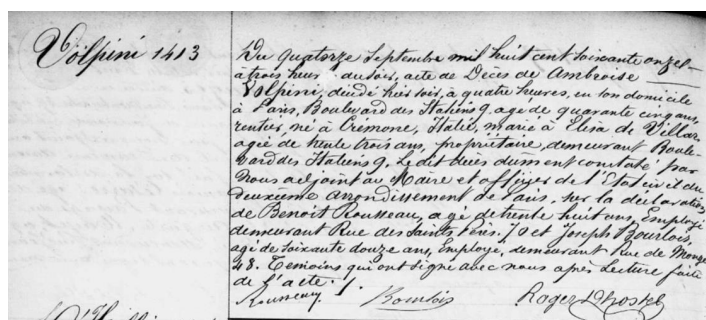 Volpini 1413
Du quatorze Septembre mil huit cent soixante onze
à trois heurs du soir, acte de Décès de Ambroise
Volpini, décédé hier soir, à quatre heures, en son domicile
à Paris, Boulevard des Italiens 9, agé de quarante cinq ans,
rentier, né à Crémone, Italie, marié à Elisa de Villar,
agée de trente trois ans, propriétaire, demeurant Boule-
vard des Italiens 9. Le dit décès dument constaté par
Nous adjoint au Maire et officier de l'Etat civil du
deuxième arrondissement de Paris, sur la déclaration
de Benoit Rousseau, agé de trente huit ans, Employé
demeurant Rue des Saints Pères. 70 et Joseph Bourlois,
agé de soixante douze ans, Employé, demeurant Rue de Monge
48. Temoins qui ont signé avec nous après Lecture faite
de l'acte. /.
Rousseau Bourlois Roger